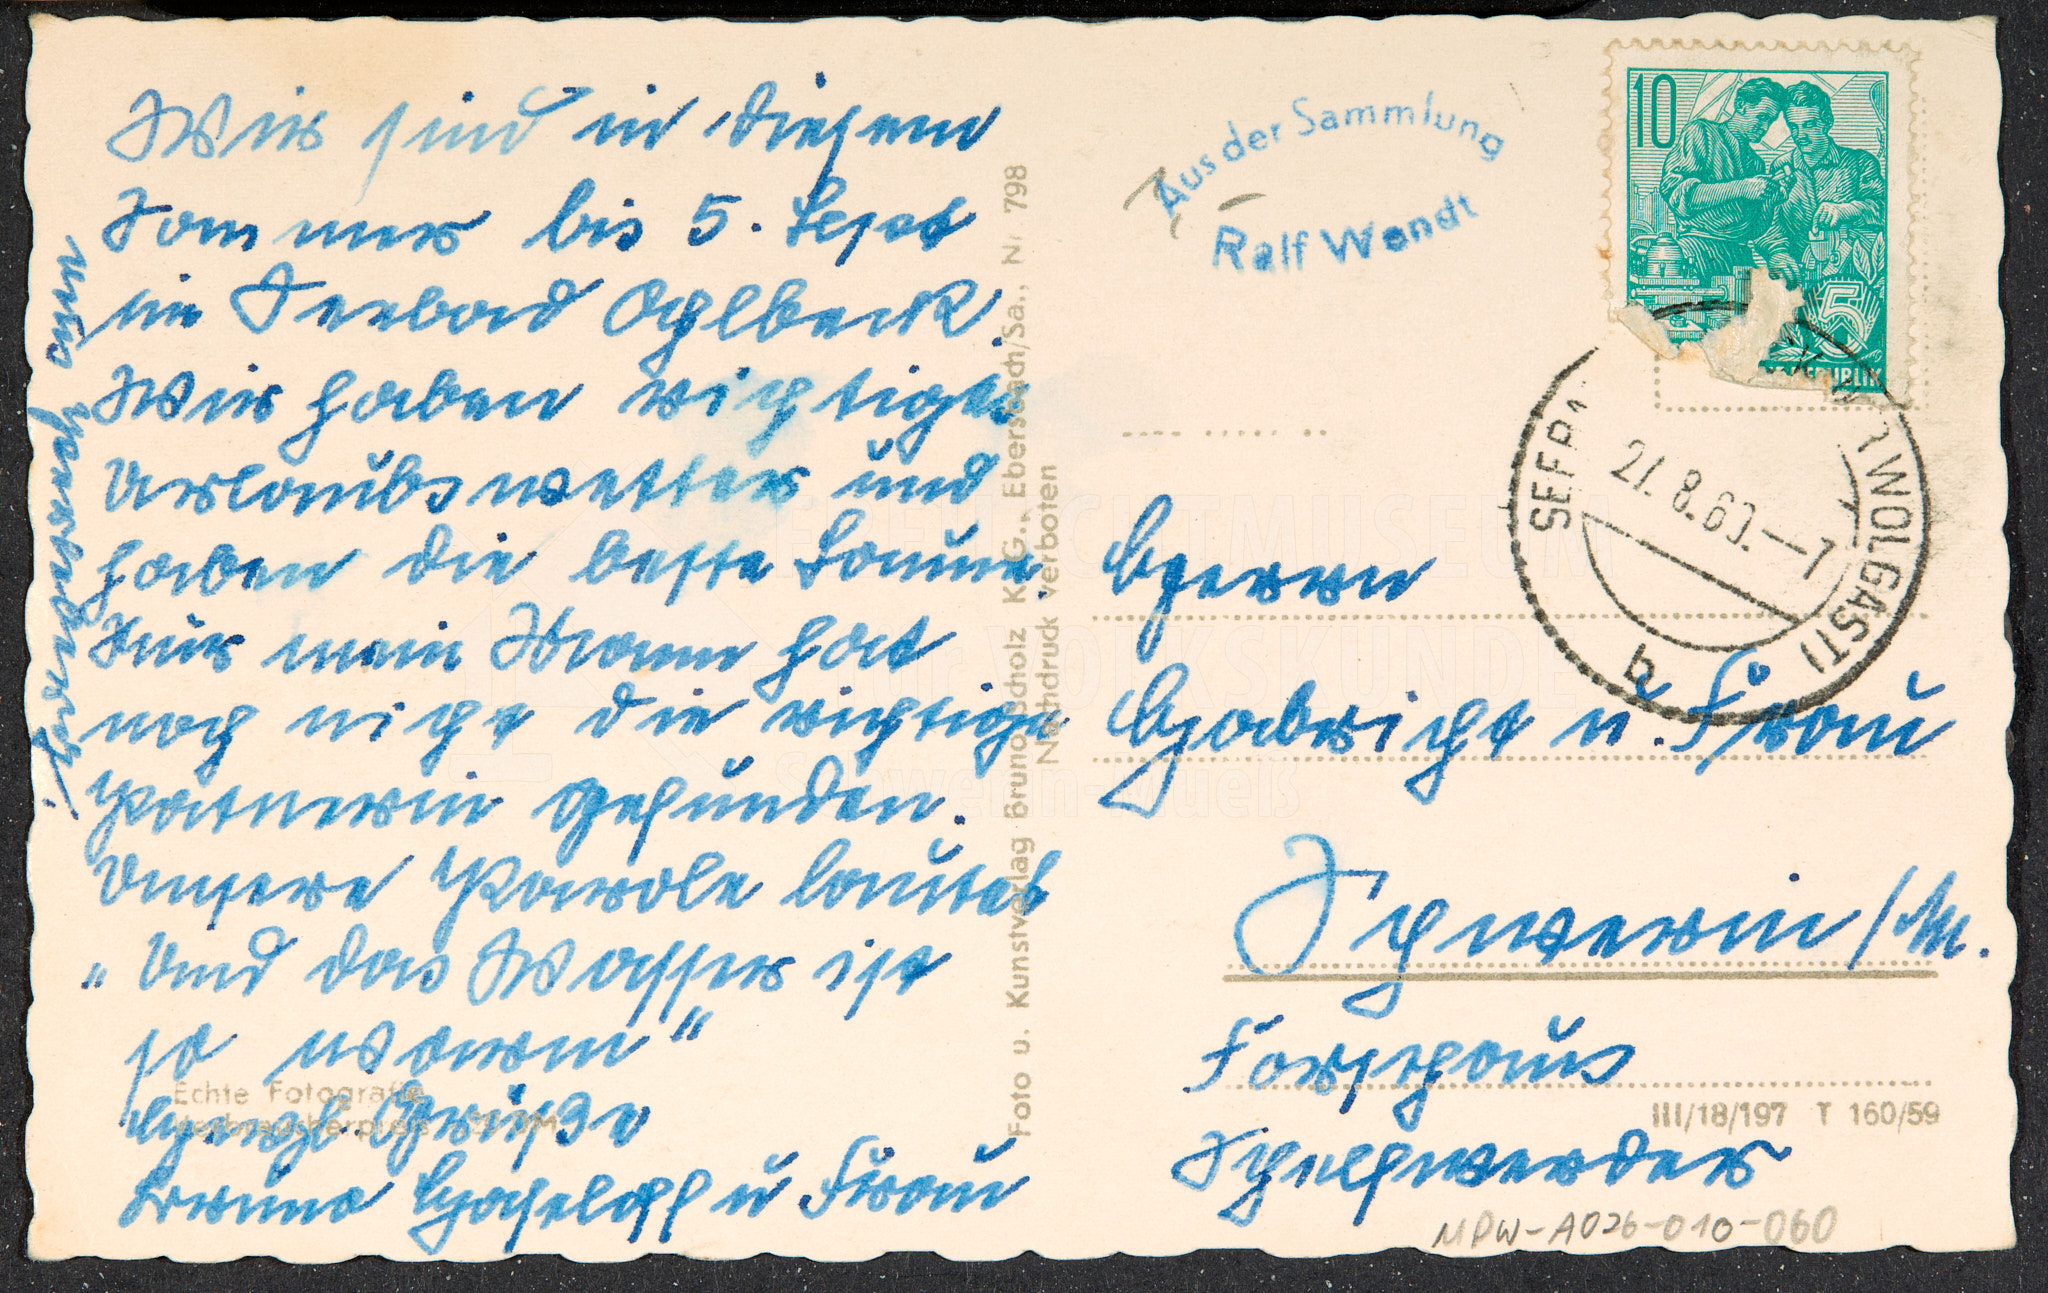 Wir sind in diesem
Sommer bis 5. Sept
im Seebad Ahlbeck.
Wir haben richtiges
Urlaubswetter und
haben die beste Laune.
Nur mein Mann hat
noch nicht die richtige
Partnerin gefunden.
Unsere Parole lautet
„Und das Wasser ist
so warm"
Herzl. Grüße
Bruno Haseloff u Frau
Aus der Sammlung
Ralf Wendt
10
5
REPUBLIK
21.8.60.--7
WOLGAST)
b
Herrn
Habricht u. Frau
Schwerin/M.
Forsthaus
Schelfwerder
III/18/197 T 160/59
MPW-A026-010-060
Foto u. Kunstverlag Bruno Scholz K.G., Ebersbach/Sa., Nr 798
Nachdruck verboten
Echte Fotografie
Verbraucherpreis
FREILICHTMUSEUM
für VOLKSKUNDE
Schwerin-Mueß